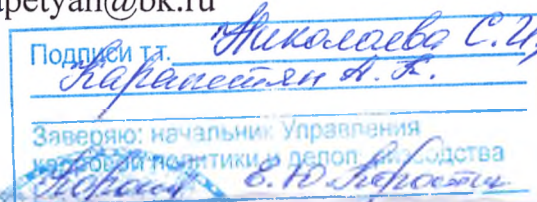 apetyan@bk.ru
Подписи т.т. Николаева С.И,
Карапетян А. К.
Заверяю: начальник Управления
кадровой политики и делопроизводства
Е.Ю